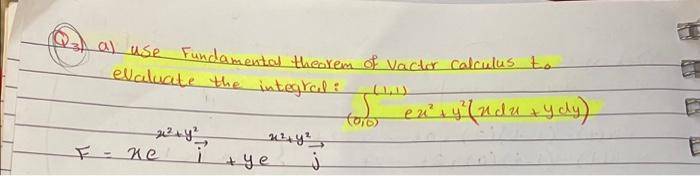 Q3) a) use Fundamental theorem of Vactor calculus to
evaluate the integral: ∫_(0,0)^(1,1) e x²+y² (x dx + y dy)
F = xe^(x²+y²) i⃗ + ye^(x²+y²) j⃗